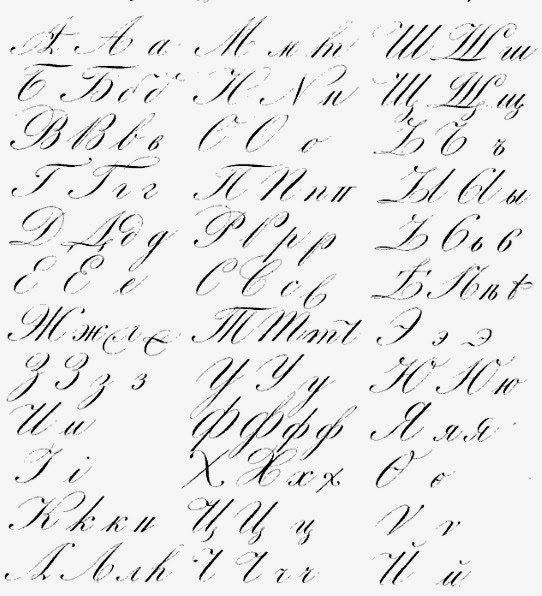 А А а М м т Ш Ш ш
Б Б б б Н N н Щ Щ щ
В В в в О О о Ъ Ъ ъ
Г Г г г П П п п Ы Ы ы
Д Д д д Р Р р р Ь Ь ь ь
Е Е е С С с с Ѣ Ѣ ѣ ѣ
Ж ж ж ж Т Т т т Э э э
З З з з У У у Ю Ю ю
И и Ф Ф ф ф Я я я
І і Х Х х х Ѳ ѳ
К к к н Ц Ц ц Ѵ ѵ
Л Л л л Ч Ч ч ч Й й